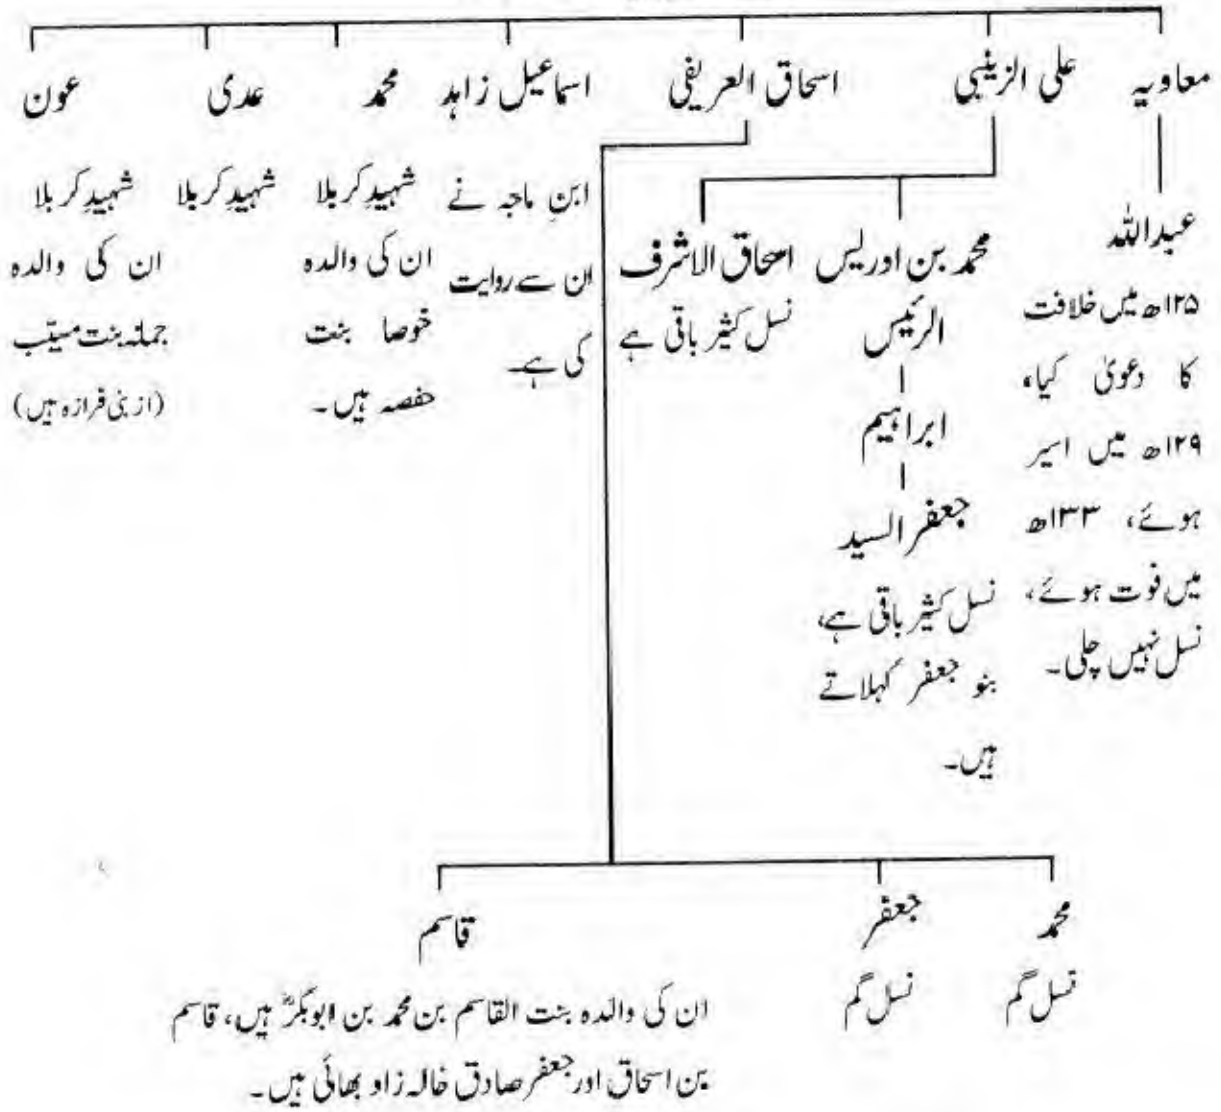 معاویہ
علی الزینبی
اسحاق العریفی
اسماعیل زاہد
محمد
عدی
عون
عبداللہ
۱۲۵ھ میں خلافت
کا دعویٰ کیا،
۱۲۹ھ میں اسیر
ہوئے، ۱۳۳ھ
میں فوت ہوئے،
نسل نہیں چلی۔
محمد بن ادریس
الرئیس
ابراہیم
جعفر السید
نسل کثیر باقی ہے،
بنو جعفر کہلاتے
ہیں۔
اسحاق الاشرف
نسل کثیر باقی ہے
ابنِ ماجہ نے
ان سے روایت
کی ہے۔
شہیدِ کربلا
ان کی والدہ
خوصا بنت
حفصہ ہیں۔
شہیدِ کربلا
شہیدِ کربلا
ان کی والدہ
جملہ بنت مسیّب
(از بنی فرازہ ہیں)
محمد
نسل گم
جعفر
نسل گم
قاسم
ان کی والدہ بنت القاسم بن محمد بن ابوبکرؓ ہیں، قاسم
بن اسحاق اور جعفر صادق خالہ زاد بھائی ہیں۔